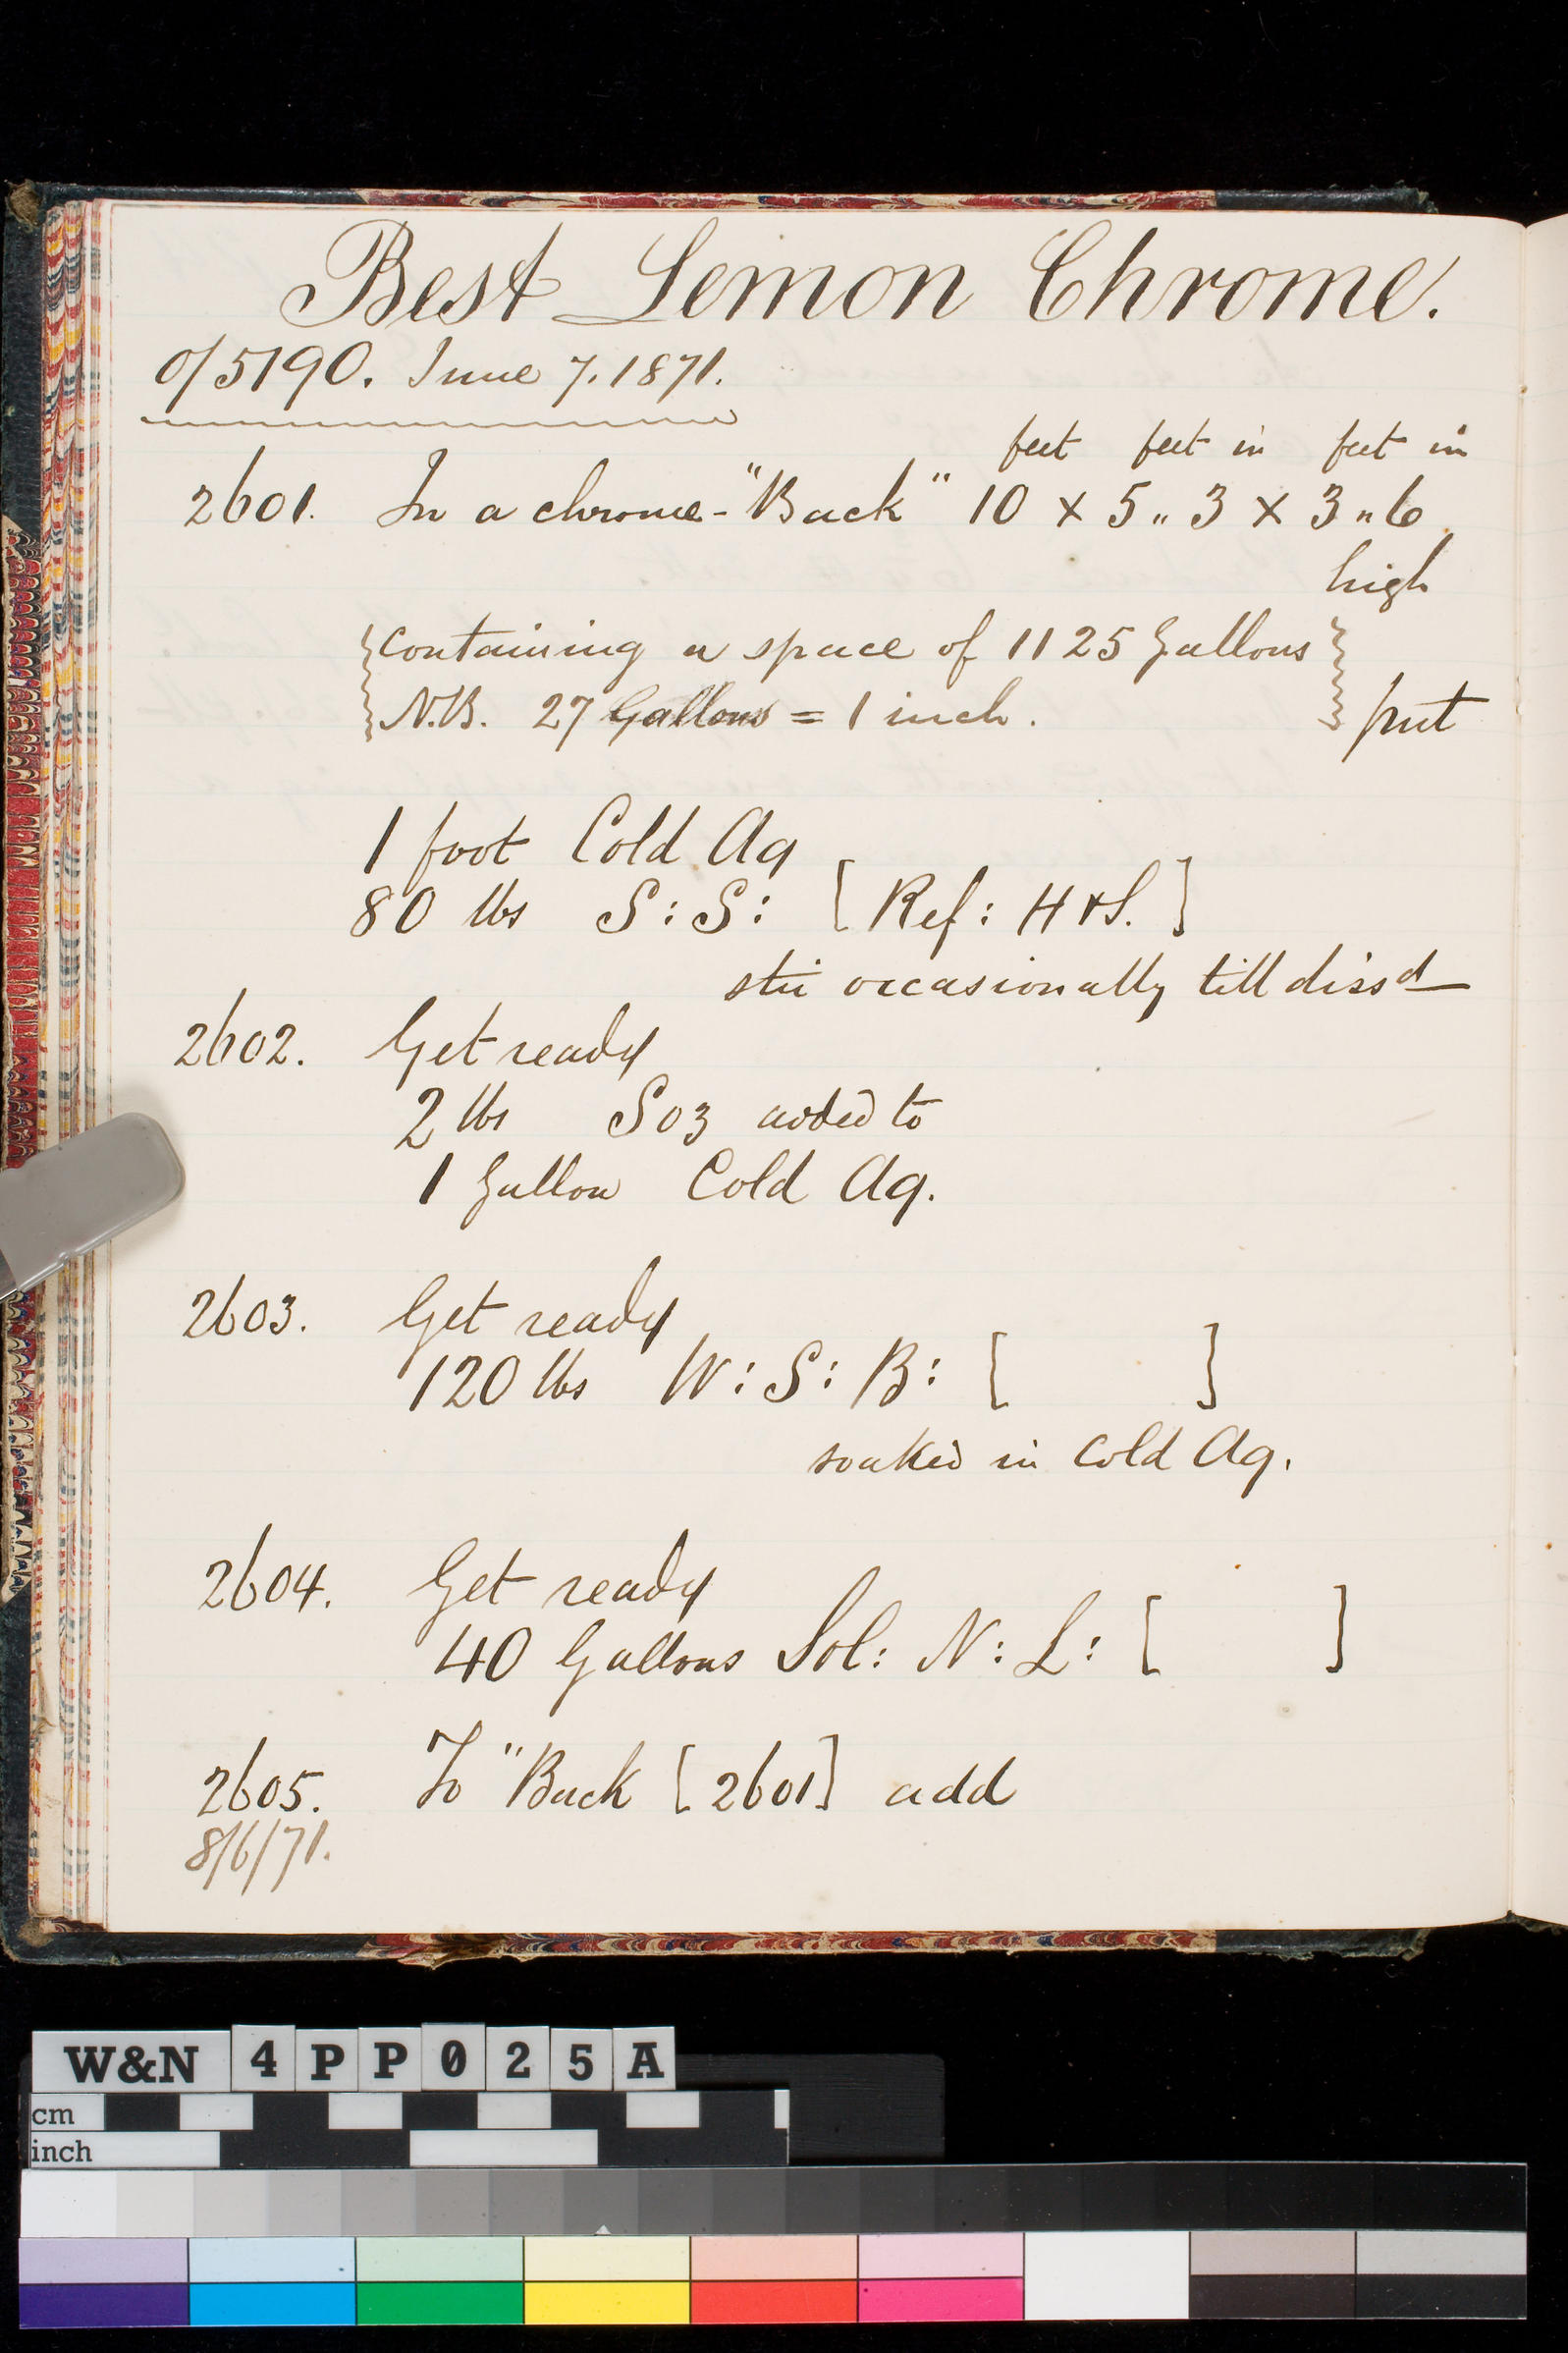 Best Lemon Chrome.
o/5190. June 7. 1871.
feet feet in feet in
2601. In a chrome-"Back" 10 x 5" 3 x 3" 6
high
{containing a space of 1125 Gallons}
{N.B. 27 Gallons = 1 inch.} put
1 foot Cold Aq
80 lbs S:S: [Ref: H & S.]
stir occasionally till dissd
2602. Get ready
2 lbs SO3 added to
1 Gallon Cold Aq.
2603. Get ready
120 lbs W:S:B: [ ]
soaked in Cold Aq.
2604. Get ready
40 Gallons Sol: N:L: [ ]
2605. To "Back [2601] add
8/6/71.
W&N 4PP025A
cm
inch